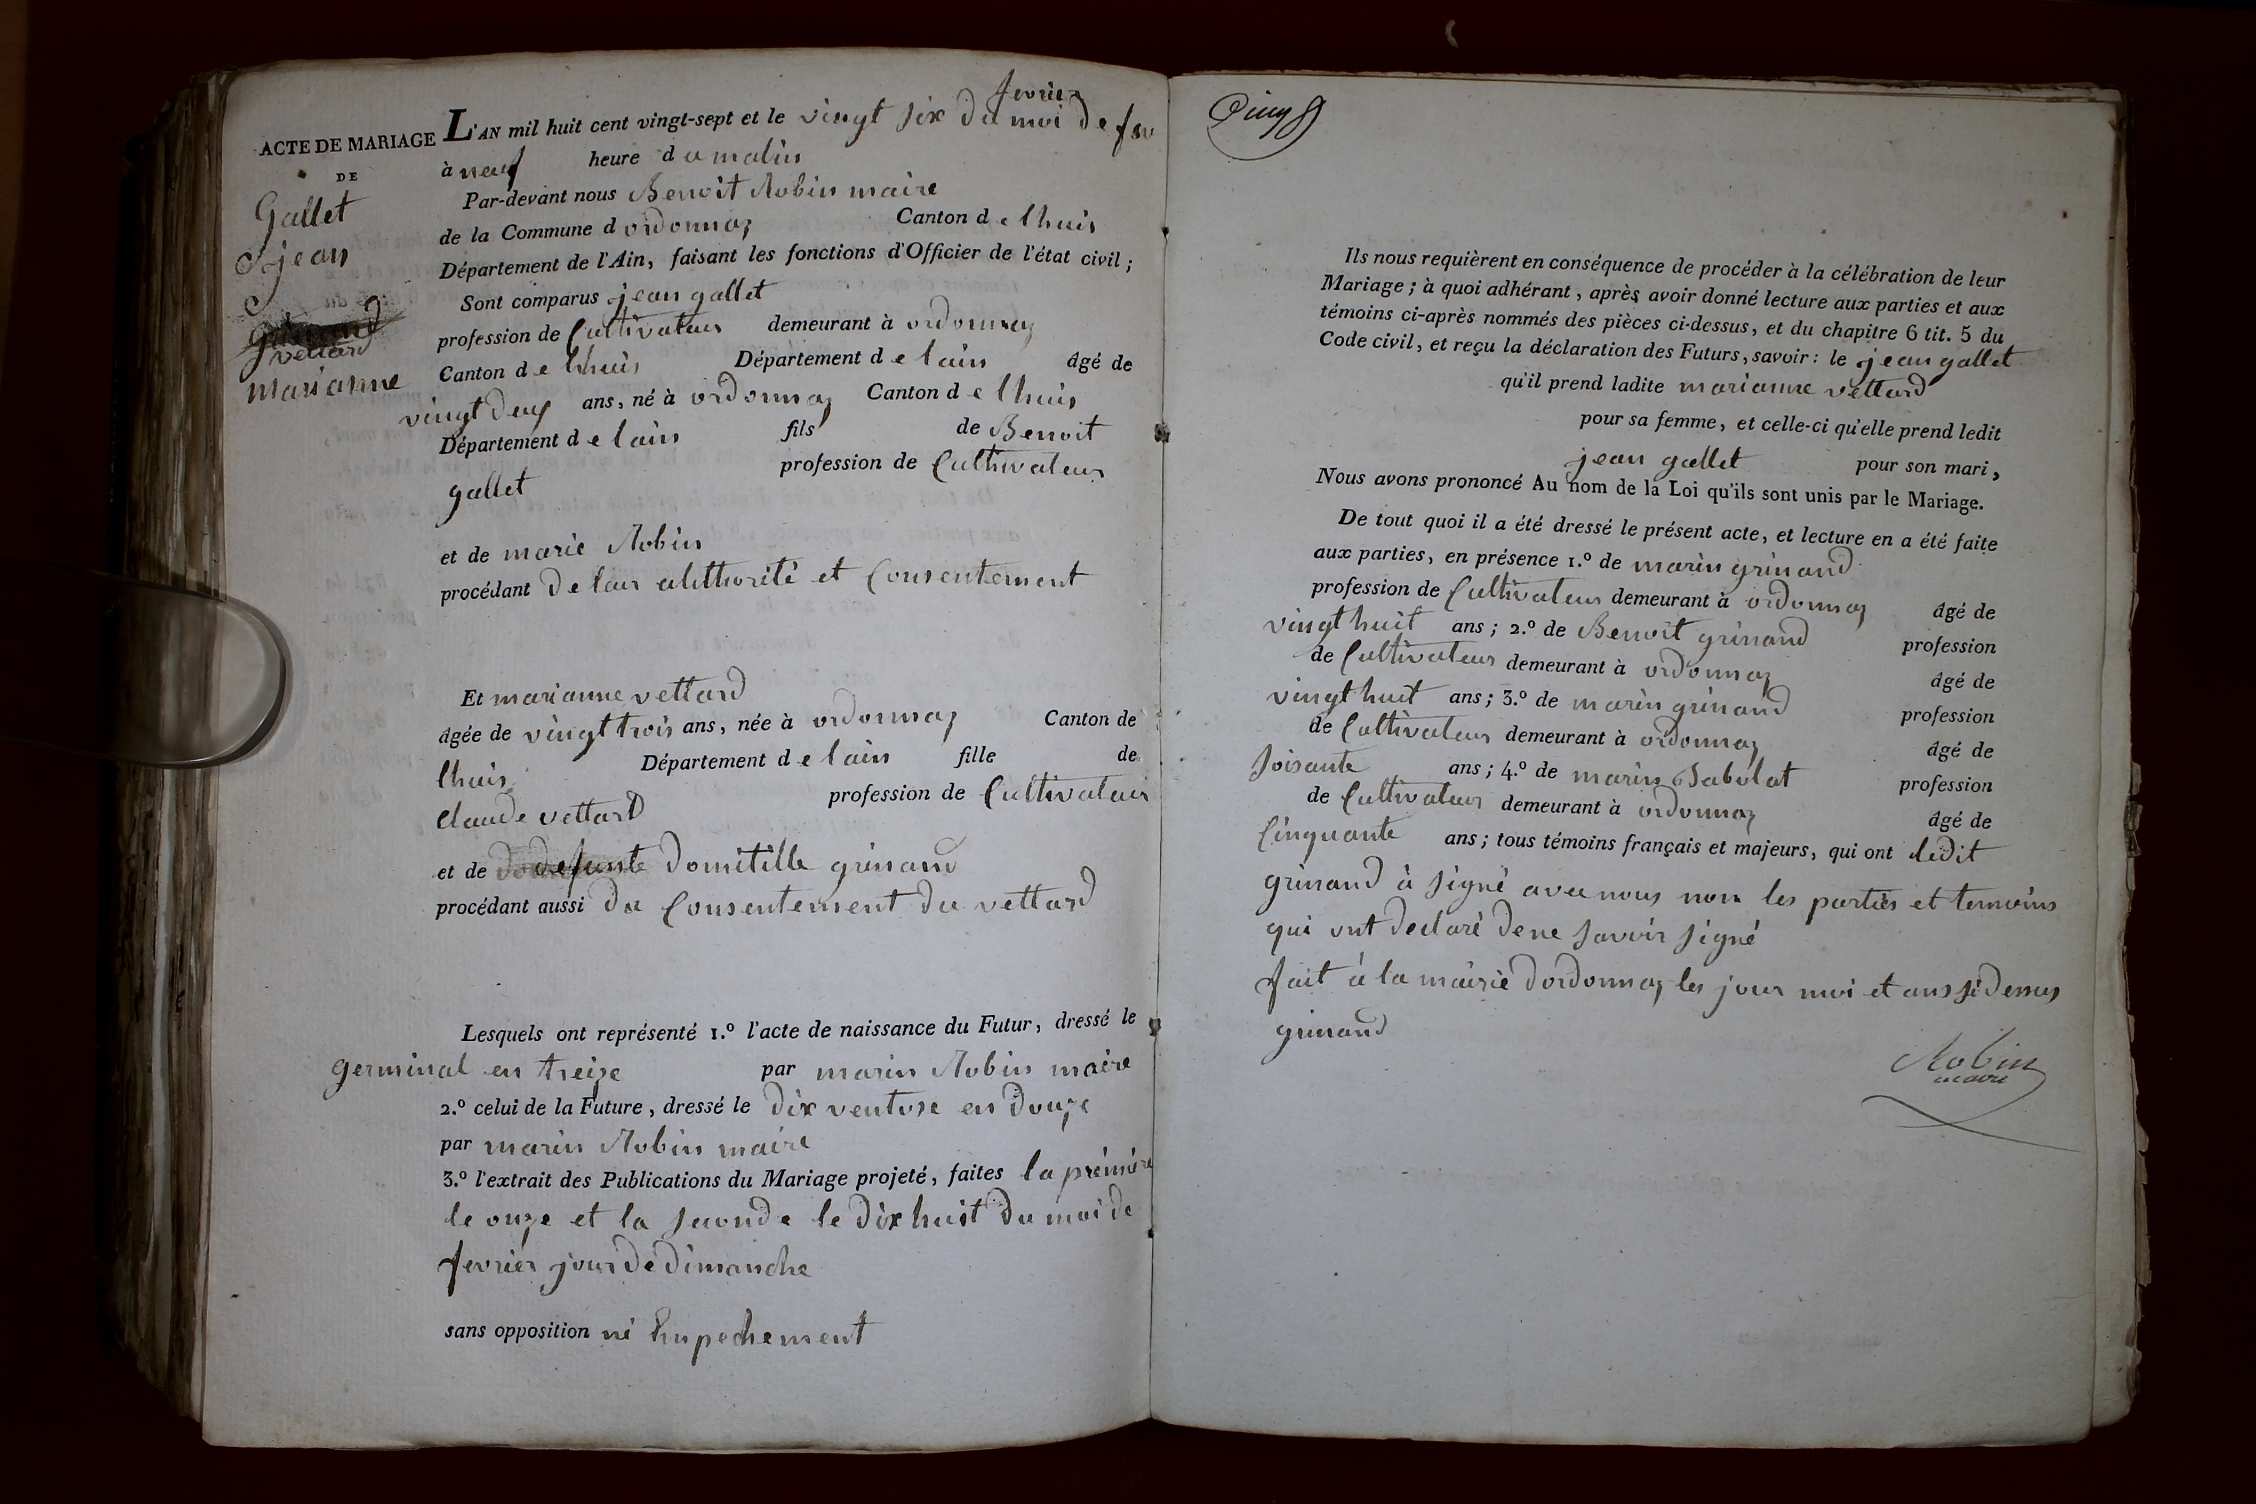 ACTE DE MARIAGE
DE
Gallet
jean
&
vettard
marianne
fevrier
L'AN mil huit cent vingt-sept et le vingt six du moi de fev
à neuf heure du matin
Par-devant nous Benoit Robin maire
de la Commune d ordonnaz Canton de lhuis
Département de l'Ain, faisant les fonctions d'Officier de l'état civil ;
Sont comparus jean gallet
profession de Cultivateur demeurant à ordonnaz
Canton de lhuis Département de lain âgé de
vingt deux ans, né à ordonnaz Canton de lhuis
Département de lain fils de Benoit
gallet profession de Cultivateur
et de marie Robin
procédant de leur authorité et Consentement
Et marianne vettard
âgée de vingt trois ans, née à ordonnaz Canton de
lhuis Département de lain fille de
Claude vettard profession de Cultivateur
et de defunte domitille grinand
procédant aussi du Consentement du vettard
Lesquels ont représenté 1.º l'acte de naissance du Futur, dressé le
germinal en treize par marin Robin maire
2.º celui de la Future, dressé le dix ventose en douze
par marin Robin maire
3.º l'extrait des Publications du Mariage projeté, faites la premiere
le onze et la seconde le dix huit du moi de
fevrier jour de dimanche
sans opposition ni Empechement
Ils nous requièrent en conséquence de procéder à la célébration de leur
Mariage ; à quoi adhérant, après avoir donné lecture aux parties et aux
témoins ci-après nommés des pièces ci-dessus, et du chapitre 6 tit. 5 du
Code civil, et reçu la déclaration des Futurs, savoir : le jean gallet
qu'il prend ladite marianne vettard
pour sa femme, et celle-ci qu'elle prend ledit
jean gallet pour son mari,
Nous avons prononcé Au nom de la Loi qu'ils sont unis par le Mariage.
De tout quoi il a été dressé le présent acte, et lecture en a été faite
aux parties, en présence 1.º de marin grinand
profession de Cultivateur demeurant à ordonnaz âgé de
vingt huit ans ; 2.º de Benoit grinand profession
de Cultivateur demeurant à ordonnaz âgé de
vingt huit ans ; 3.º de marin grinand profession
de Cultivateur demeurant à ordonnaz âgé de
soisante ans ; 4.º de marin Sabolat profession
de Cultivateur demeurant à ordonnaz âgé de
Cinquante ans ; tous témoins français et majeurs, qui ont ledit
grinand à signé avec nous non les parties et temoins
qui ont declaré de ne savoir signé
fait à la mairie dordonnaz les jour moi et ans si dessus
grinand
Robin
maire